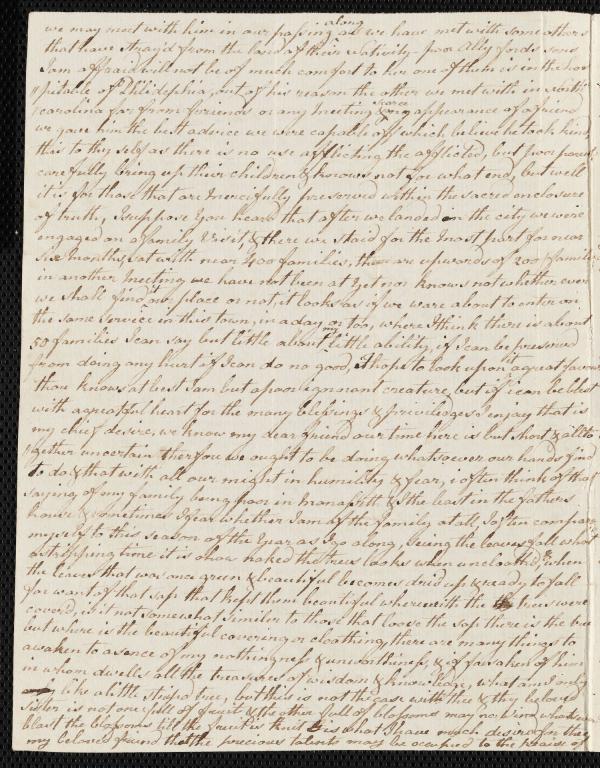 we may meet with him in our passing along as we have met with some others
that have stray'd from the land of their Nativity - poor Ally fords sons
I am affraid will not be of much comfort to her one of them is in the hos
"pital of Philidephia, out of his reason the other we met with in north
carolina far from friends or any Meeting scarce any appearance of a friend
we gave him the best advice we were capable off which I believe he took kind
this to thy self as there is no use afflicting the afflicted, but poor parents
carefully bring up their children & knows not for what end, but well
it is for those that are Mercifully preserved within the sacred enclosure
of truth, I suppose you heard that after we landed in the city we were
engaged on a family Visit & there we staid for the most part for near
six months, sat with near 400 families, there are upwards of 200 families
in another Meeting we have not been at yet nor knows not whether ever
we shall find our place or not it looks as if we ware about to enter on
the same service in this town, in a day or too, where I think there is about
50 families I can say but little about my little ability, if I can be preserved
from doing any hurt if I can do no good, I hope to look upon it a great favour
thou knows at best I am but a poor ignorant creature, but if i can be blest
with a greatful heart for the many blessings & priviliges I injoy that is
my chief desire, we know my dear friend our time here is but short & all to
"gether uncertain therfore we ought to be doing whatsoever our hands find
to do & that with all our might in humility & fear, i often think of that
saying of my family being poor in Manassah & I the least in the fathers
house & sometimes I fear whether I am of the family at all I often compare
myself to this season of the Year as I go along, seeing the leaves fall what
a stripping time it is o how naked the trees looks when uncloathd, & when
the leaves that was once green & beautiful becomes dried up & ready to fall
for want of that sap that kept them beautiful wherewith the trees were
coverd, is it not somewhat similer to those that loose the sap there is the tree
but where is the beautiful covering or cloathing, there are many things to
awaken to a sence of my nothingness & unworthiness, & if forsaken of him
in whom dwells all the treasures of wisdom & knowledge, what am I only
like a little striped tree, but this is not the case with thee & thy beloved
sister is not one full of fruit & the other full of blossoms may no wind whatever
blast the blossoms till the fruit is knit is what I have much desired for thee
my beloved friend that the precious talents may be occupied to the praise of